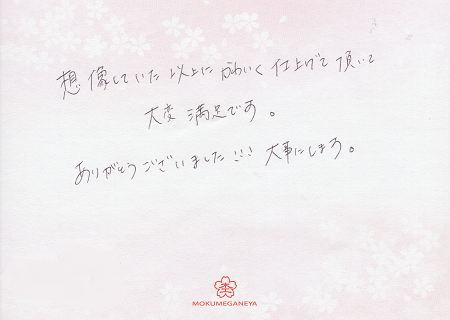 想像していた以上に かわいく 仕上げて 頂いて
大変 満足です。
ありがとうございました!!! 大事にします。
MOKUMEGANEYA